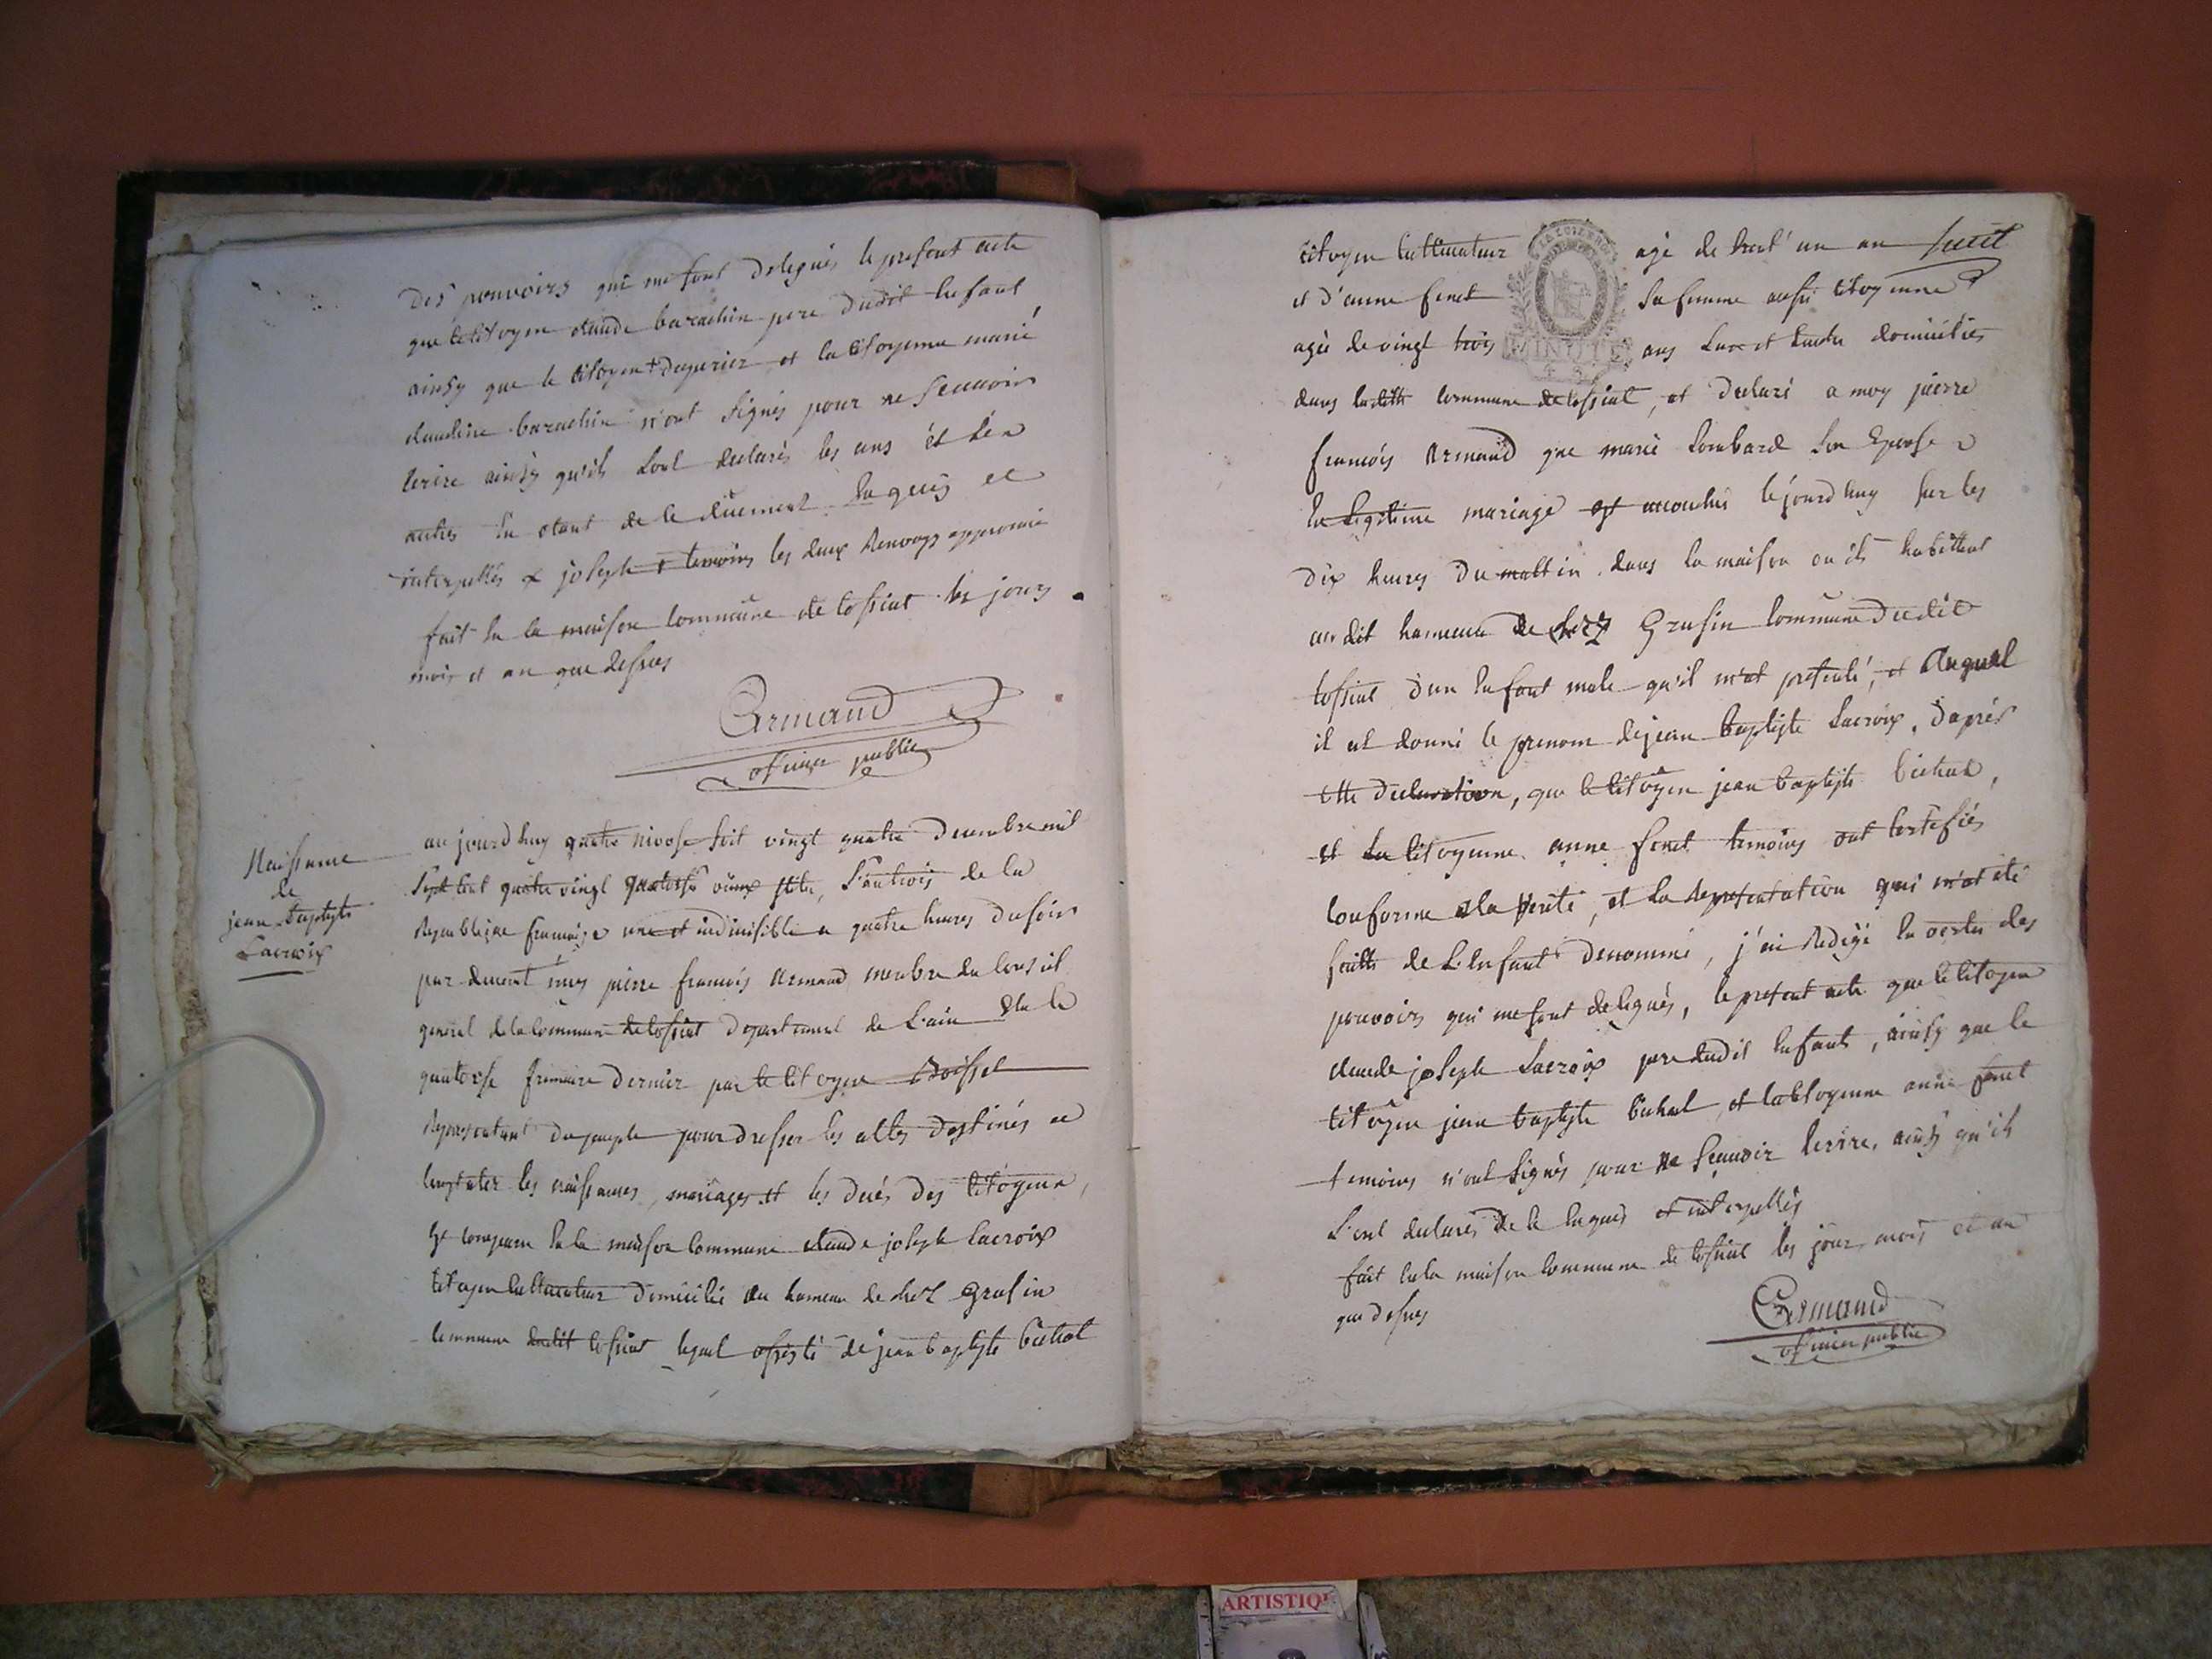 Des pouvoirs qui me sont delegués le present acte
que le citoyen claude barachin pere dudit enfant
ainsy que le citoyen + duperier et la citoyenne marie
claudine barachin n'ont signés pour ne scavoir
ecrire ainsy qu'ils sont declarés les uns et les
autres en etant de le duement enquis et
interpellés + joseph + temoins les deux renvoys approuvé
fait en la maison commune de tossiat les jours
mois et an que dessus
Armand
oficier public
Naissance
de
jean baptiste
Lacroix
au jourdhuy quatre nivose soit vingt quatre decembre mil
sept cent quatre vingt quatorse vieux stile, L'an trois de la
Republique francaise une et indivisible a quatre heures du soir
par devant moy pierre francois armand membre du conseil
general de la commune de tossiat departement de L'ain elu le
quatorse frimaire dernier par le citoyen Boisset
representant du peuple pour dresser les actes destinés a
constater les naissances, mariages et les decés des citoyens,
est comparu en la maison commune claude joseph Lacroix
citoyen cultivateur domicilié au hameau de chez grusin
commune dudit tossiat lequel assisté de jean baptiste bichat
citoyen cultivateur agé de trent'un an
et d'anne feret sa femme aussi citoyenne
agée de vingt trois ans L'un et L'autre domiciliés
dans laditte commune de tossiat, at declaré a moy pierre
francois armand que marie Lombard son epouse
en legitime mariage est accouchée lejourdhuy sur les
dix heures du mattin dans la maison ou ils habittent
au dit hameau de chez Grusin commune dudit
tossiat d'un enfant male qu'il m'at presenté, et auquel
il at donné le prenom de jean baptiste Lacroix, d'aprés
cette declaration, que le citoyen jean baptiste bichat,
et la citoyenne anne feret temoins ont certifiés
conforme a la verité, et la representation qui m'at eté
faitte de L'enfant denommé, j'ai redigé en vertu des
pouvoirs qui me sont delegués, le present acte que le citoyen
claude joseph Lacroix pere dudit enfant, ainsy que le
citoyen jean baptiste bichat et la citoyenne anne feret
temoins n'ont signés pour ne scavoir ecrire, ainsy qu'ils
L'ont declarés de le enquis et interpellés
fait en la maison commune de tossiat les jour mois et an
que dessus
Armand
oficier public
MINUTE
ARTISTIQ